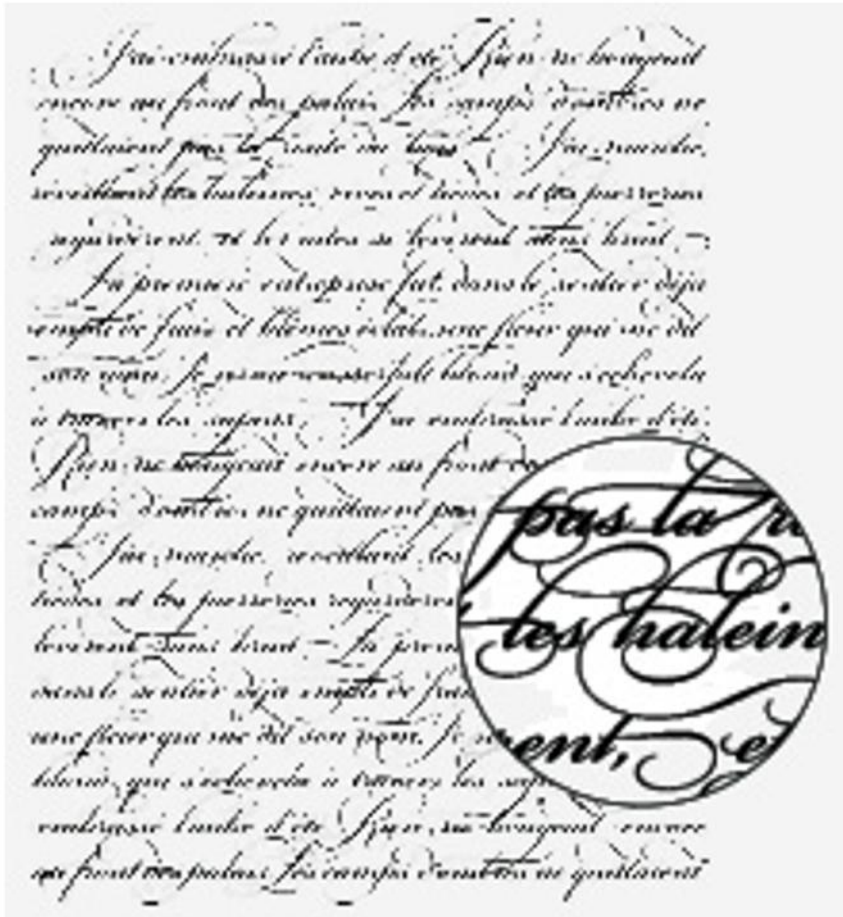 J'ai embrassé l'aube d'été. Rien ne bougeait
encore au front des palais. Les camps d'ombres ne
quittaient pas la route du bois. J'ai marché,
réveillant les haleines vives et tièdes, et les pierreries
regardèrent, et les ailes se levèrent sans bruit.
La première entreprise fut, dans le sentier déjà
empli de frais et blêmes éclats, une fleur qui me dit
son nom. Je wasserfall blond qui s'échevela
à travers les sapins. J'ai embrassé l'aube d'été.
Rien ne bougeait encore au front
camps d'ombres ne quittaient pas
J'ai marché, réveillant les
tièdes, et les pierreries regardèrent
levèrent sans bruit. La
dans le sentier déjà empli de
une fleur qui me dit son nom. Je
blond qui s'échevela à travers les
embrassé l'aube d'été. Rien ne bougeait encore
au front des palais. Les camps d'ombres ne quittaient
pas la
les halein
ent, et